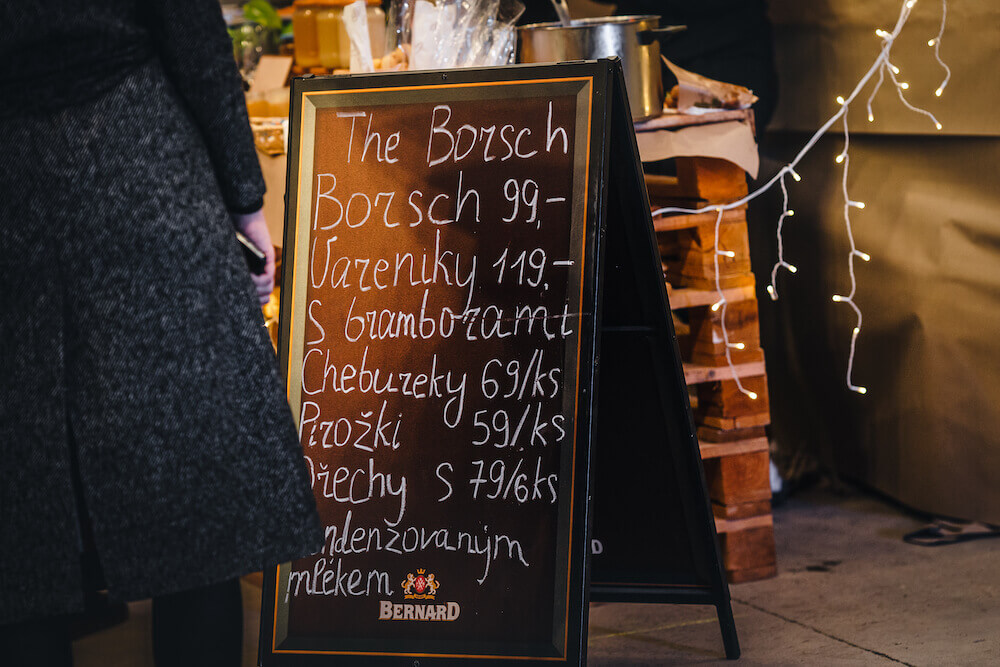 The Borsch
Borsch 99,-
Vareniky 119,-
S bramboramt
Chebureky 69/ks
Pirožki 59/ks
ořechy S 79/6ks
ndenzovaným
mlékem
BERNARD